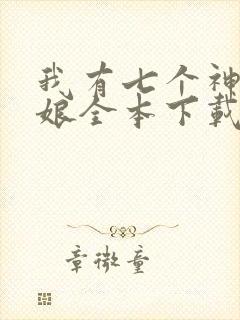 我有七个神
娘全本下载
章微童